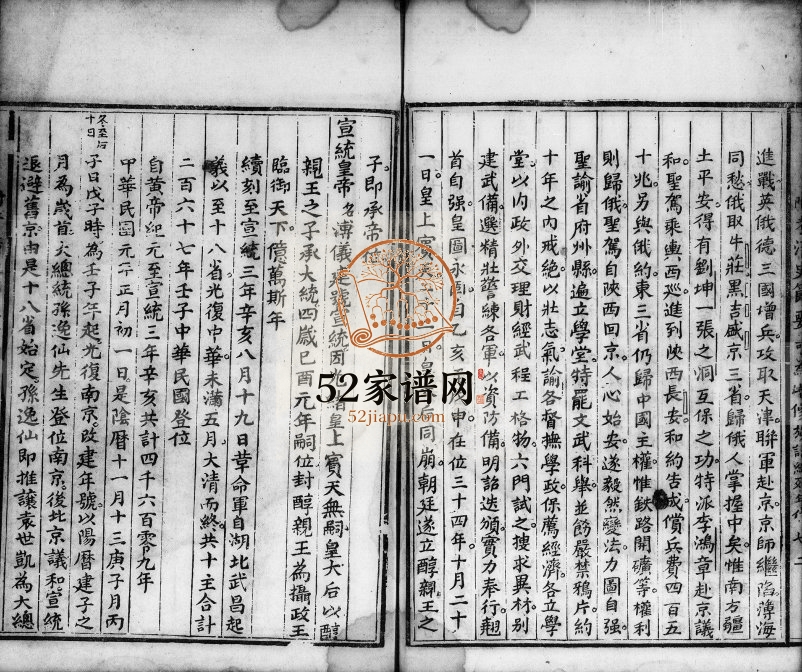 進戰英俄德三國增兵攻取天津聯軍赴京京師繼陷薄海
同愁俄取牛莊黑吉盛京三省歸俄人掌握中矣惟南方疆
土平安得有劉坤一張之洞互保之功特派李鴻章赴京議
和聖駕乘輿西巡進到陜西長安和約告成償兵費四百五
十兆另與俄約東三省仍歸中國主權惟鉄路開礦等權利
則歸俄聖駕自陜西回京人心始安遂毅然變法力圖自强
聖諭省府州縣遍立學堂特罷文武科舉並飭嚴禁鴉片約
十年之內戒絶以壯志氣諭各督撫學政保薦經濟各立學
堂以內政外交理財經武程工格物六門試之搜求異材別
建武備選精壯警練各軍以資防備明詔迭頒實力奉行翹
首自强皇圖永固自乙亥 申在位三十四年十月二十
一日皇上賓天 同崩朝廷遂立醇親王之
子即承帝位
宣統皇帝 名溥儀是號宣統因光緒皇上賓天無嗣皇太后以醇
親王之子承大統四歲巳酉元年嗣位封醇親王為攝政王
臨御天下億萬斯年
續刻至宣統三年辛亥八月十九日革命軍自湖北武昌起
義以至十八省光復中華未滿五月大清而終共十主合計
二百六十七年壬子中華民國登位
自黃帝紀元至宣統三年辛亥共計四千六百零九年
中華民國元年正月初一日是陰曆十一月十三庚子月丙
冬至后十日
子日戊子時為壬子年起光復南京改建年號以陽曆建子之
月為歲首大總統孫逸仙先生登位南京後北京議和宣統
退避舊京由是十八省始定孫逸仙即推讓袁世凱為大總
52家谱网
52jiapu.com